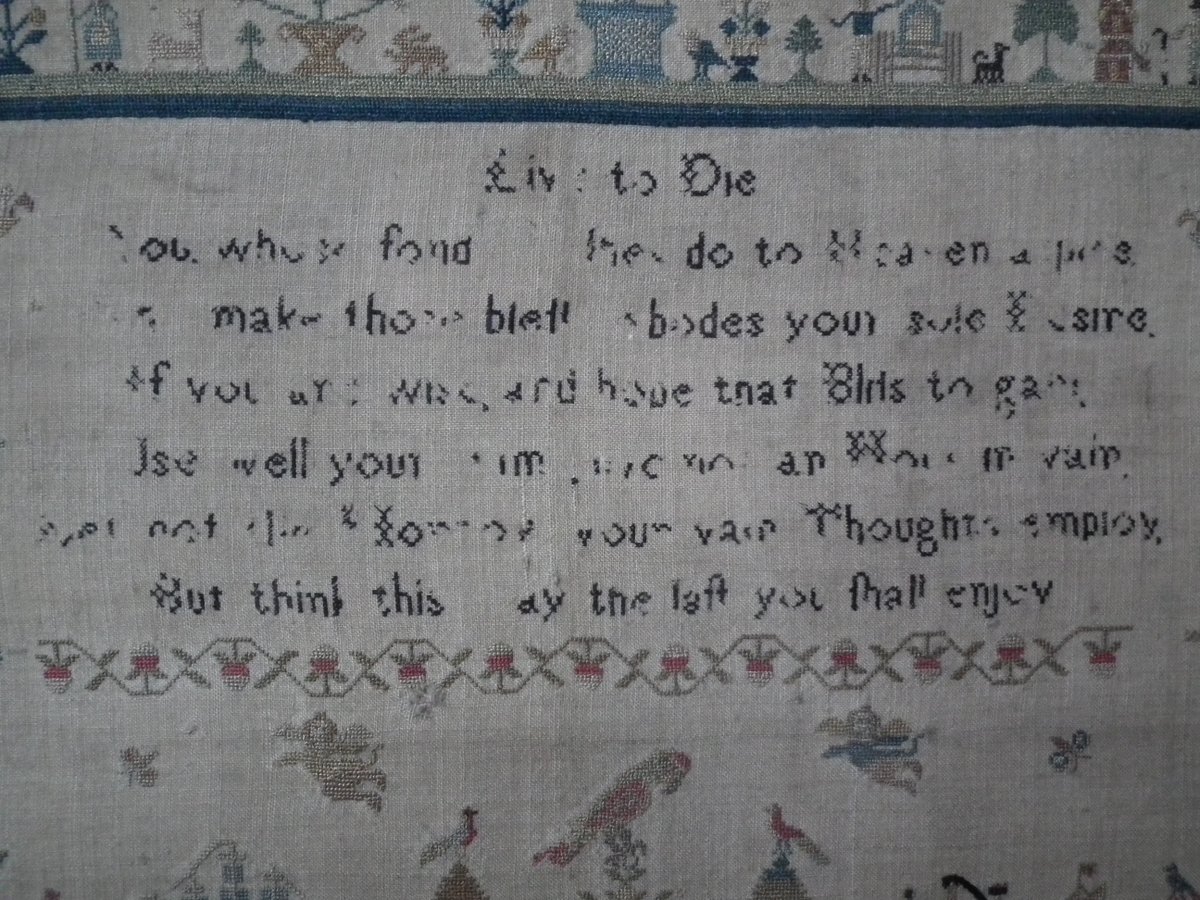 Live to Die
You whose fond do to Heaven aspire
make those blest abodes your sole Desire.
If you are wise, and hope that Bliss to gain
Use well your Time, not an Hour in vain,
Let not the Morrow your vain Thoughts employ,
But think this Day the last you shall enjoy